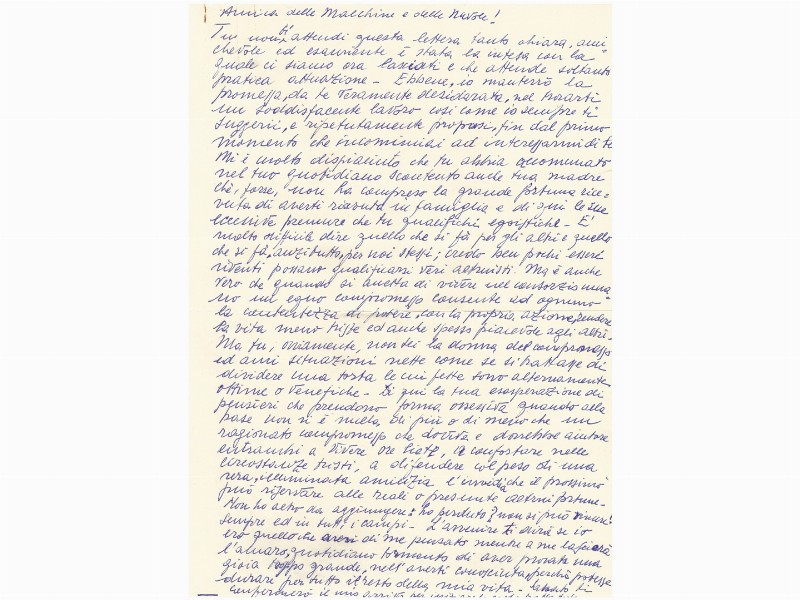 Amica delle Macchine e delle Nuvole!
Tu non ti attendi questa lettera tanto chiara, ami
chevole ed esauriente è stata la intesa con la
quale ci siamo ora lasciati e che attende soltanto
pratica attuazione - Ebbene, io manterrò la
promessa, da te veramente desiderata, nel trovarti
un soddisfacente lavoro così come io sempre ti
suggerii, e ripetutamente proposi, fin dal primo
momento che incominciai ad interessarmi di te
Mi è molto dispiaciuto che tu abbia accomunato
nel tuo quotidiano scontento anche tua madre
che, forse, non ha compreso la grande fortuna rice-
vuta di averti riavuta in famiglia e di qui le sue
eccessive premure che tu qualifichi egoistiche - E'
molto difficile dire quello che si fà per gli altri e quello
che si fà, anzitutto, per noi stessi; credo ben pochi esseri
viventi possano qualificarsi veri altruisti. Ma è anche
vero che quando si accetta di vivere nel consorzio uma
no un equo compromesso consente ad ognuno
la contentezza di potere, con la propria azione, rendere
la vita meno triste ed anche spesso piacevole agli altri -
Ma tu, ovviamente, non sei la donna del compromesso
ed ami situazioni nette come se si trattasse di
dividere una torta le cui fette sono alternamente
ottime o venefiche - Di qui la tua esasperazione di
pensieri che prendono forma ossessiva quando alla
base non vi è nulla di più o di meno che un
ragionato compromesso che doveva e dovrebbe aiutare
entrambi a vivere ore liete, a confortare nelle
circostanze tristi, a difendere col peso di una
vera, illuminata amicizia l'invidia che il prossimo
può riservare alle reali o presunte altrui fortune -
Non ho altro da aggiungere: ho perduto? non si può vincere
sempre ed in tutti i campi - L'avvenire ti dirà se io
ero quello che avevi di me pensato mentre a me lascerà
l'amaro, quotidiano tormento di aver provato una
gioia troppo grande, nell'averti conosciuta, perchè potesse
durare per tutto il resto della mia vita - ti